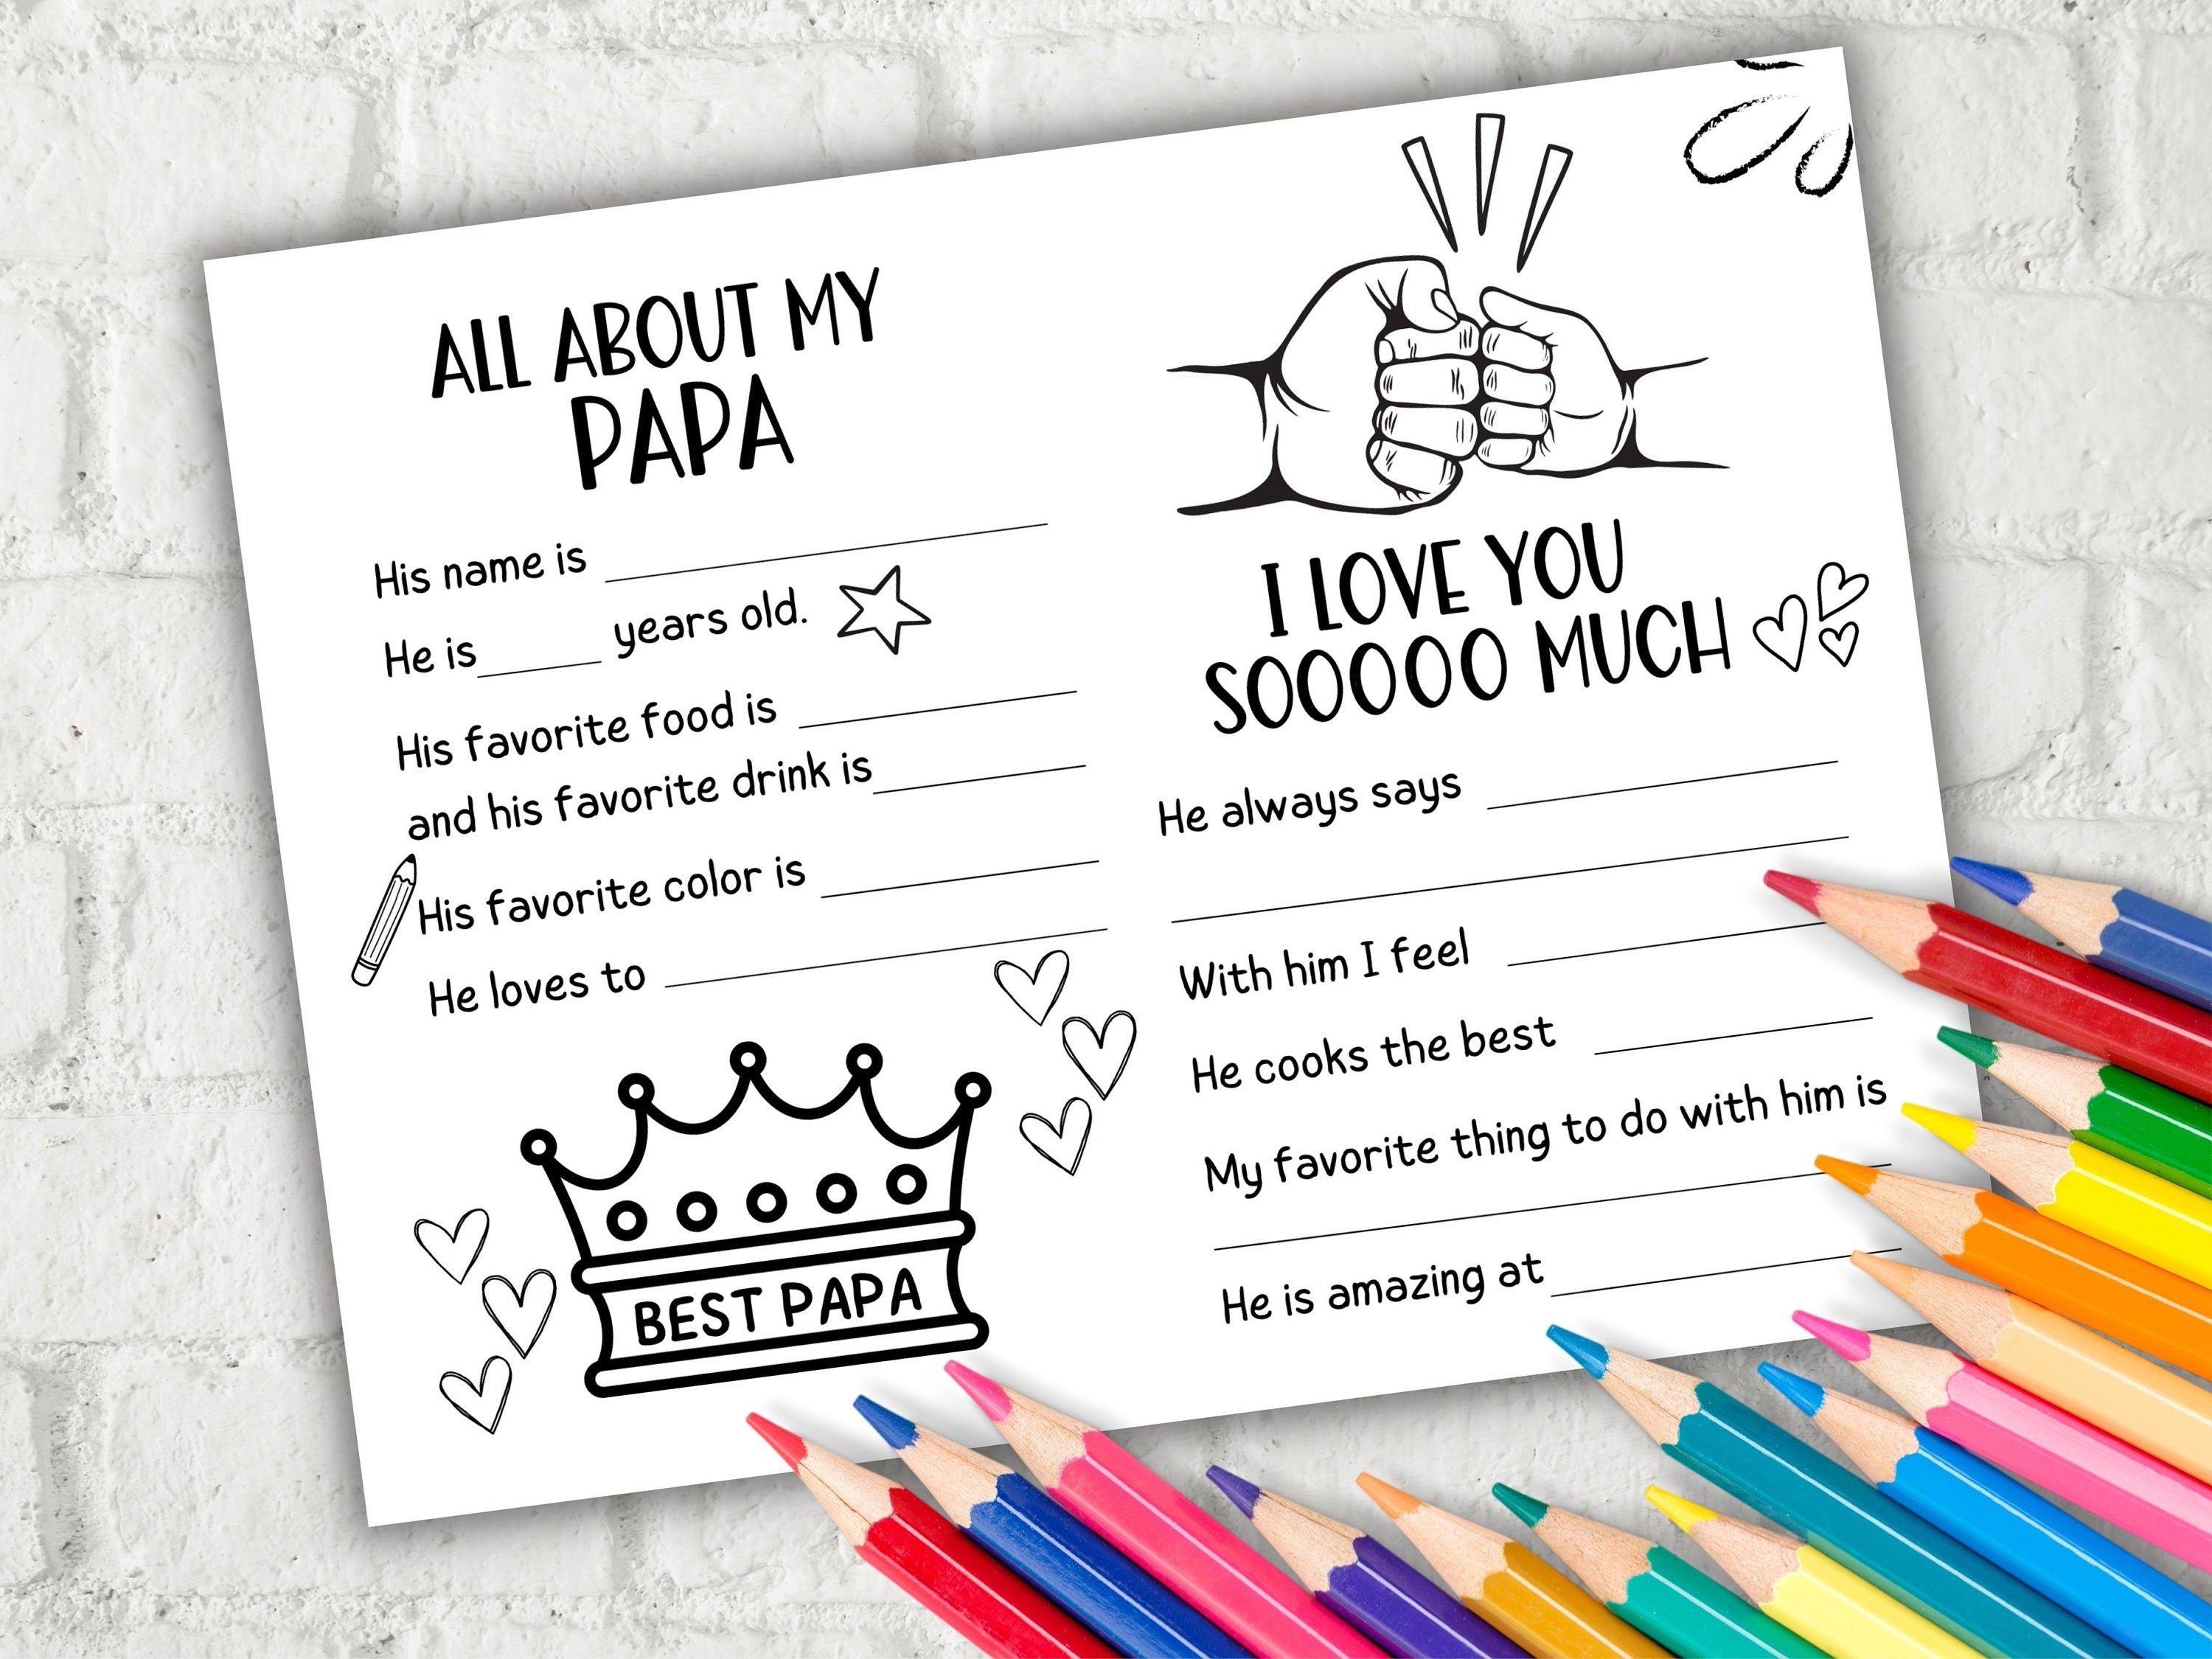 ALL ABOUT MY
PAPA
His name is
He is years old.
His favorite food is
and his favorite drink is
His favorite color is
He loves to
BEST PAPA
I LOVE YOU
SOOOOO MUCH
He always says
With him I feel
He cooks the best
My favorite thing to do with him is
He is amazing at